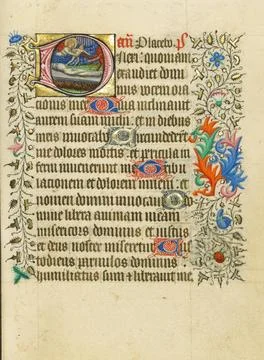 Placebo. ps
ilexi: quoniam
exaudiet domi
nus vocem ora
tionis mee Quia inclinavit
aurem suam michi: et in diebus
meis invocabo Circumdederunt
me dolores mortis: et pericula in
ferni invenerunt me Tribu
lationem et dolorem inveni: et
nomen domini invocavi O do
mine libera animam meam
misericors dominus et iustus
et deus noster miseretur Cus
todiens parvulos dominus
humiliatus sum et liberavit me.